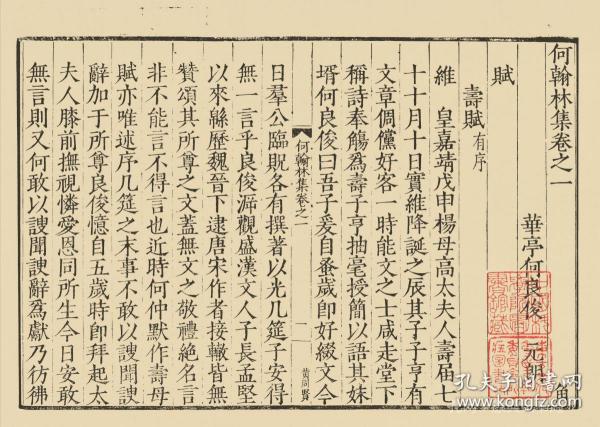 何翰林集卷之一
華亭何良俊 元朗
賦
壽賦有序
維 皇嘉靖戊申楊母高太夫人壽届七
十十月十日實維降誕之辰其子子亨有
文章倜儻好客一時能文之士咸走堂下
稱詩奉觴為壽子亨抽毫授簡以語其妹
壻何良俊曰吾子爰自蚤歲卽好綴文今
何翰林集卷之一
一
黄周賢
日羣公臨貺各有撰著以光几筵子安得
無一言乎良俊溽觀盛漢文人子長孟堅
以來緜歷魏晉下逮唐宋作者接轍皆無
贊頌其所尊之文蓋無文之敬禮絶名言
非不能言不得言也近時何仲默作壽母
賦亦唯述序几筵之末事不敢以謏聞諛
辭加于所尊良俊憶自五歲時卽拜起太
夫人膝前撫視憐愛恩同所生今日安敢
無言則又何敢以謏聞諛辭爲獻乃彷彿
孔夫子旧书网
kongfz.com